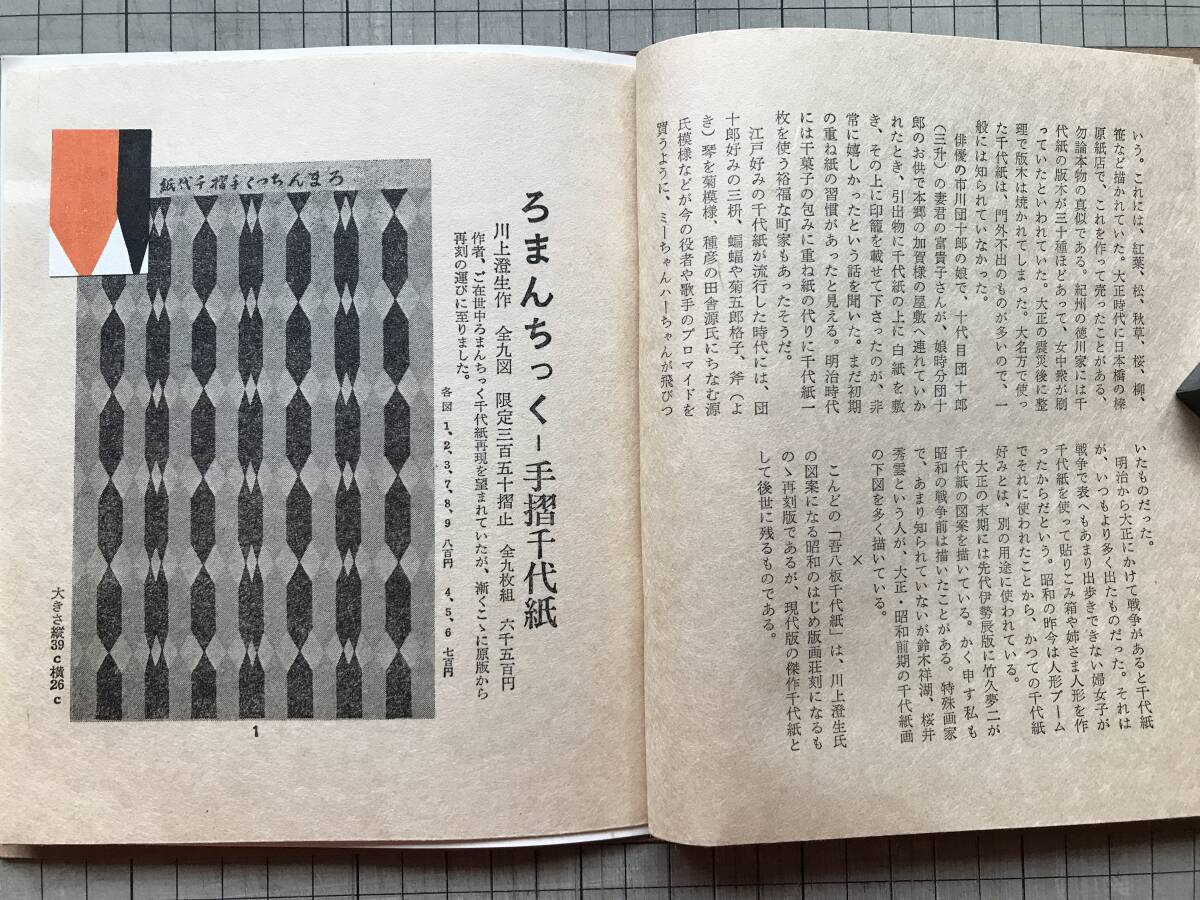 いう。これには、紅葉、松、秋草、桜、柳、
笹など描かれていた。大正時代に日本橋の榛
原紙店で、これを作って売ったことがある、
勿論本物の真似である。紀州の徳川家には千
代紙の版木が三十種ほどあって、女中衆が刷
っていたといわれていた。大正の震災後に整
理で版木は焼かれてしまった。大名方で使っ
た千代紙は、門外不出のものが多いので、一
般には知られていなかった。
俳優の市川団十郎の娘で、十代目団十郎
（三升）の妻君の富貴子さんが、娘時分団十
郎のお供で本郷の加賀様の屋敷へ連れていか
れたとき、引出物に千代紙の上に白紙を敷
き、その上に印籠を載せて下さったのが、非
常に嬉しかったという話を聞いた。まだ初期
の重ね紙の習慣があったと見える。明治時代
には干菓子の包みに重ね紙の代りに千代紙一
枚を使う裕福な町家もあったそうだ。
江戸好みの千代紙が流行した時代には、団
十郎好みの三枡、蝙蝠や菊五郎格子、斧（よ
き）琴を菊模様、種彦の田舎源氏にちなむ源
氏模様などが今の役者や歌手のブロマイドを
買うように、ミーちゃんハーちゃんが飛びつ
いたものだった。
明治から大正にかけて戦争があると千代紙
が、いつもより多く出たものだった。それは
戦争で表へもあまり出歩きできない婦女子が
千代紙を使って貼りこみ箱や姉さま人形を作
ったからだという。昭和の昨今は人形ブーム
でそれに使われたことから、かつての千代紙
好みとは、別の用途に使われている。
大正の末期には先代伊勢辰版に竹久夢二が
千代紙の図案を描いている。かく申す私も
昭和の戦争前は描いたことがある。特殊画家
で、あまり知られていないが鈴木祥湖、桜井
秀雲という人が、大正・昭和前期の千代紙画
の下図を多く描いている。
×
こんどの「吾八板千代紙」は、川上澄生氏
の図案になる昭和のはじめ版画荘刻になるも
のゝ再刻版であるが、現代版の傑作千代紙と
して後世に残るものである。
ろまんちっく―手摺千代紙
川上澄生作 全九図 限定三百五十摺止 全九枚組 六千五百円
作者、ご在世中ろまんちっく千代紙再現を望まれていたが、漸くこゝに原版から
再刻の運びに至りました。
各図 1、2、3、7、8、9 八百円 4、5、6 七百円
ろまんちっく手摺千代紙
1
大きさ縦39c横26c